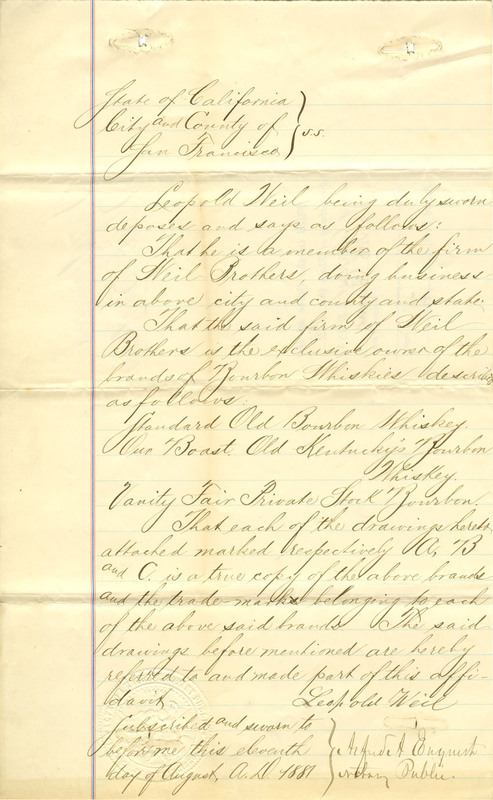 State of California
City and County of } s.s.
San Francisco
Leopold Weil being duly sworn
deposes and says as follows:
That he is a member of the firm
of Weil Brothers, doing business
in above city and county and state.
That the said firm of Weil
Brothers is the exclusive owner of the
brands of Bourbon Whiskies described
as follows:
Standard Old Bourbon Whiskey.
Our Boast, Old Kentucky's Bourbon
Whiskey.
Vanity Fair Private Stock Bourbon.
That each of the drawings hereto
attached marked respectively A, B
and C. is a true copy of the above brands
and the trade-marks belonging to each
of the above said brands. The said
drawings before mentioned are hereby
referred to and made part of this affi-
davit
Leopold Weil
Subscribed and sworn to
before me this eleventh
day of August, A.D. 1881
Notary Public.